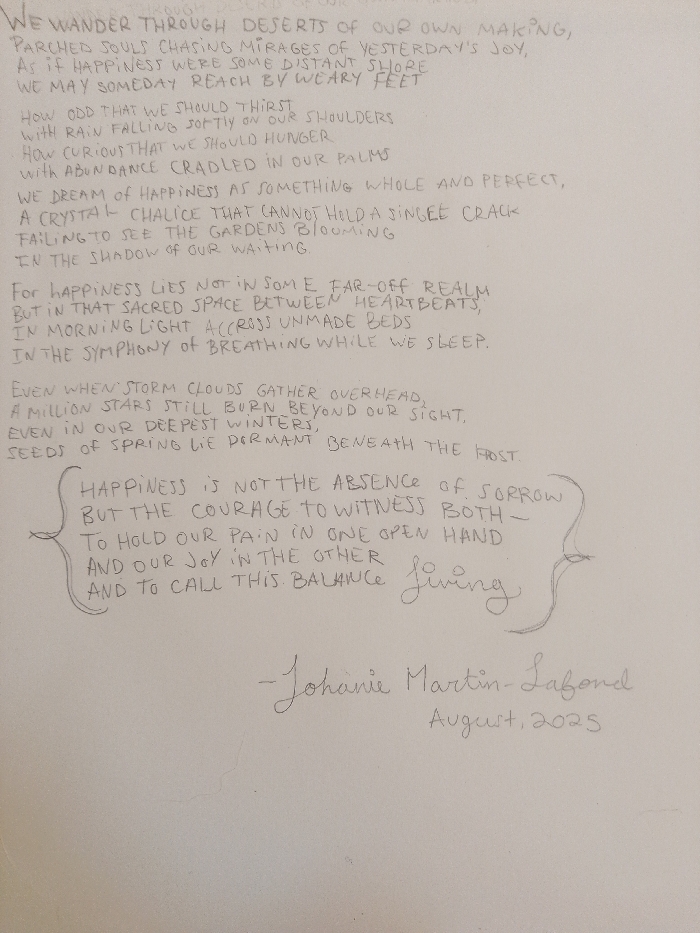 WE WANDER THROUGH DESERTS OF OUR OWN MAKING,
PARCHED SOULS CHASING MIRAGES OF YESTERDAY'S JOY,
AS if HAPPINESS WERE SOME DISTANT SHORE
WE MAY SOMEDAY REACH BY WEARY FEET
HOW ODD THAT WE SHOULD THIRST
with RAIN FALLING SOFTLY ON OUR SHOULDERS
HOW CURIOUS THAT WE SHOULD HUNGER
with ABUNDANCE CRADLED IN OUR PALMS
WE DREAM of HAPPINESS AS SOMETHING WHOLE AND PERFECT,
A CRYSTAL CHALICE THAT CANNOT HOLD A SINGLE CRACK
FAILING TO SEE THE GARDENS BLOOMING
IN THE SHADOW of OUR WAITING.
FOR HAPPINESS LIES NOT IN SOME FAR-OFF REALM
BUT IN THAT SACRED SPACE BETWEEN HEARTBEATS,
IN MORNING LIGHT ACCROSS UNMADE BEDS
IN THE SYMPHONY of BREATHING WHILE WE SLEEP.
EVEN WHEN STORM CLOUDS GATHER OVERHEAD,
A MILLION STARS STILL BURN BEYOND OUR SIGHT,
EVEN IN OUR DEEPEST WINTERS,
SEEDS of SPRING LIE DORMANT BENEATH THE FROST.
HAPPINESS is NOT THE ABSENCE of SORROW
BUT THE COURAGE TO WITNESS BOTH—
TO HOLD OUR PAIN IN ONE OPEN HAND
AND OUR JOY IN THE OTHER
AND TO CALL THIS BALANCE living.
-Johanie Martin-Lafond
August, 2025